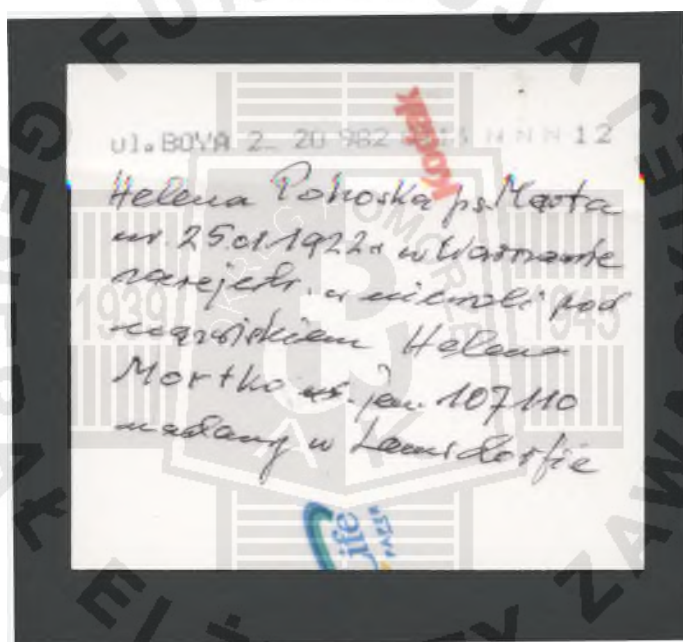 ul. BOYA 2 20 982 N N N 12
Kodak
Helena Pohoska ps. Marta
ur. 25.01.1922 r w Warszawie
zarejestr. w niewoli pod
nazwiskiem Helena
Mortko nr. jen. 107110
nadany w Lamsdorfie
Life
PAPER
1939 1945